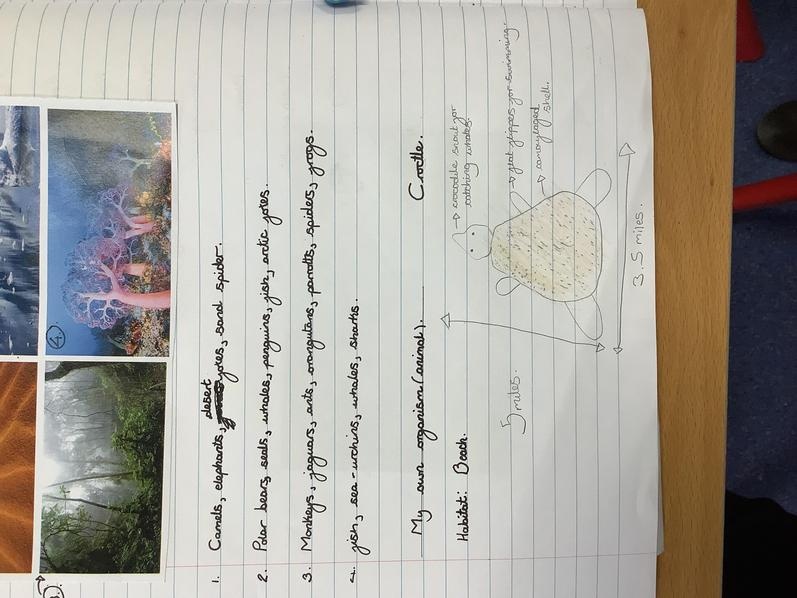 4.
1. Camels, elephants, desert foxes, sand spider.
2. Polar bears, seals, whales, penguins, fish, artic foxes.
3. Monkeys, jaguars, ants, orangutans, parrotts, spiders, frogs.
4. fish, sea-urchins, whales, sharks.
My own organism (animal). Croctle.
Habitat: Beach.
→ crocodile snout for
catching whales.
→ flat flippes for swimming.
→ camouflaged
shell.
5 miles.
3.5 miles.